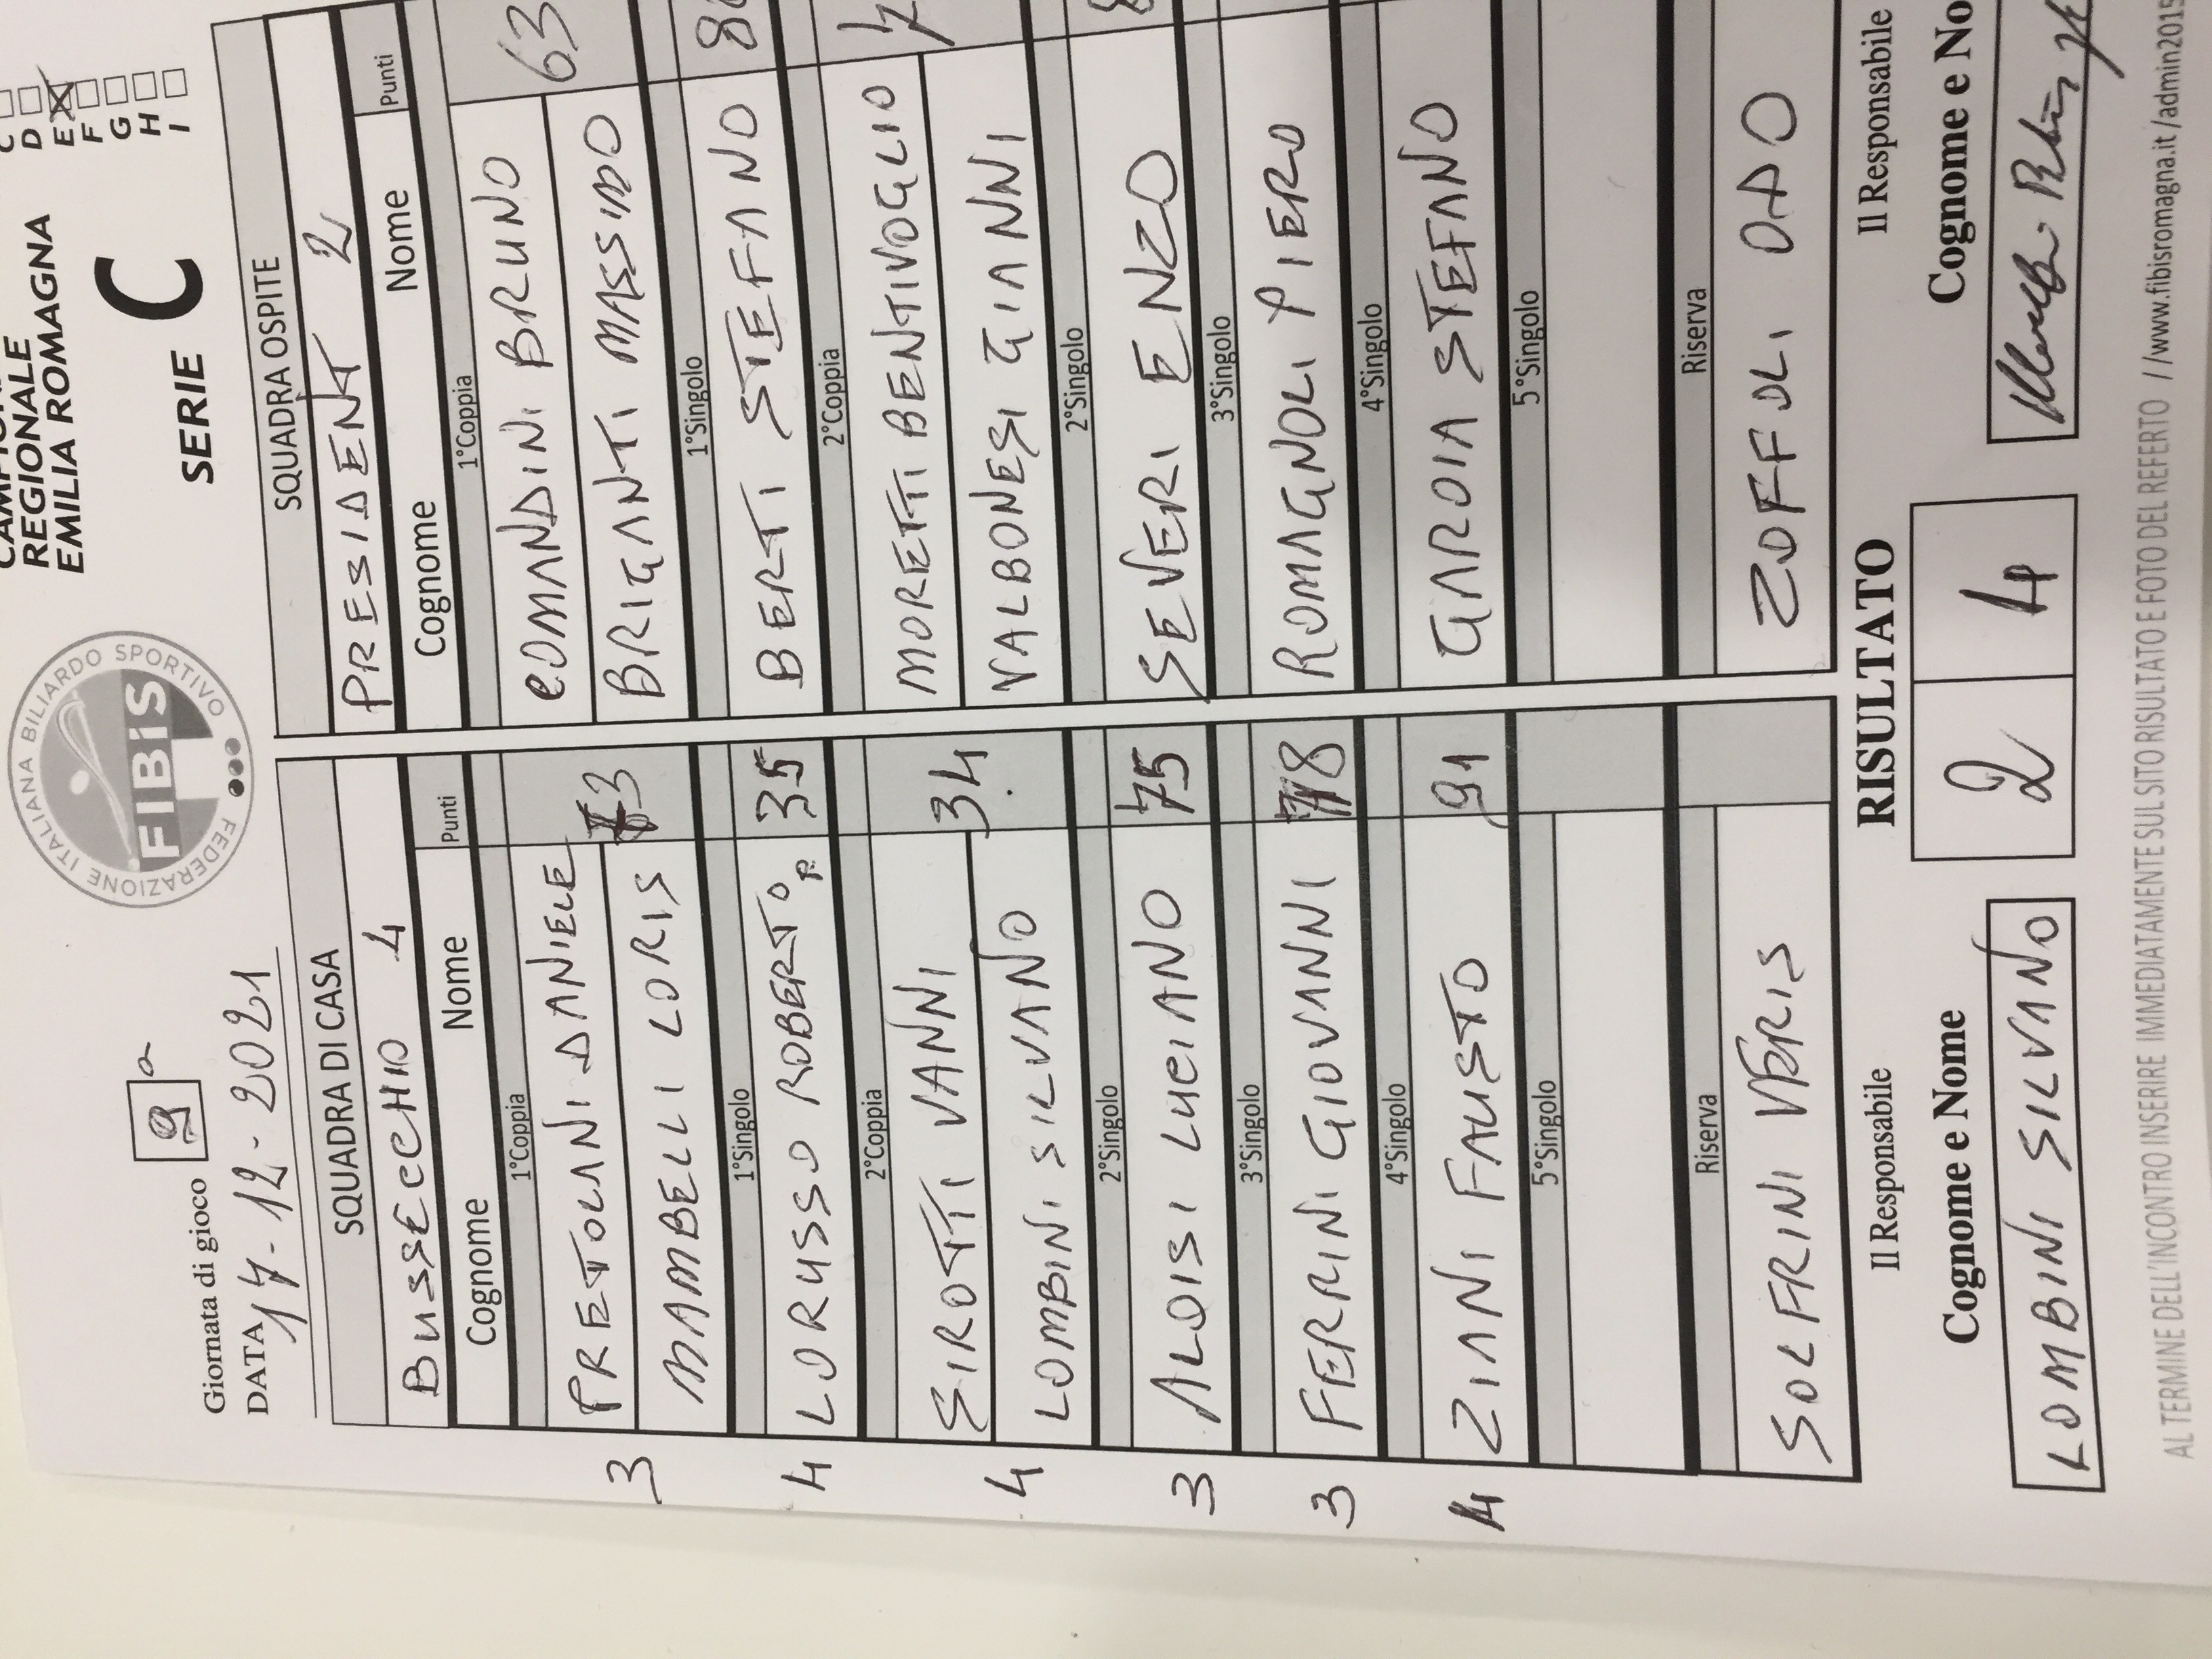 FEDERAZIONE ITALIANA BILIARDO SPORTIVO
FIBiS
REGIONALE
EMILIA ROMAGNA
SERIE C
C
D
E
F
G
H
I
Giornata di gioco 9 a
DATA 17-12-2021
SQUADRA DI CASA
BUSSECCHIO 4
Cognome Nome Punti
1°Coppia
PRETOLANI DANIELE
73
MAMBELLI LORIS
3
1°Singolo
4 LORUSSO ROBERTO P. 35
2°Coppia
SIROTTI VANNI
34
LOMBINI SILVANO
4
2°Singolo
3 ALOISI LUCIANO 75
3°Singolo
3 FERRINI GIOVANNI 78
4°Singolo
4 ZIANI FAUSTO 91
5°Singolo
Riserva
SOLFRINI VERIS
SQUADRA OSPITE
PRESIDENT 2
Cognome Nome Punti
1°Coppia
COMANDINI BRUNO
63
BRIGANTI MASSIMO
1°Singolo
BERTI STEFANO
2°Coppia
MORETTI BENTIVOGLIO
VALBONESI GIANNI
2°Singolo
SEVERI ENZO
3°Singolo
ROMAGNOLI PIERO
4°Singolo
GARDIA STEFANO
5°Singolo
Riserva
ZOFFOLI ODO
RISULTATO
2 4
Il Responsabile
Cognome e Nome
LOMBINI SILVANO
Il Responsabile
Cognome e No
AL TERMINE DELL'INCONTRO INSERIRE IMMEDIATAMENTE SUL SITO RISULTATO E FOTO DEL REFERTO //www.fibisromagna.it/admin2015